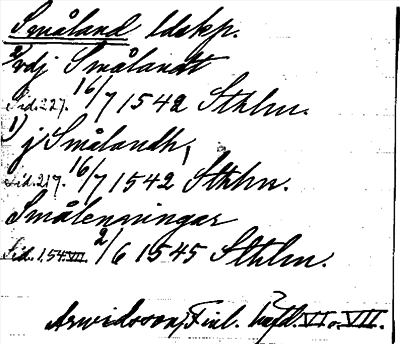 Småland ldskp.
2) vdj Smålandt
Sid. 227. 16/7 1542 Sthlm.
1) j Smålandh,
Sid. 217. 16/7 1542 Sthlm.
Smålenningar
Sid. 154. VII. 2/6 1545 Sthlm.
Arwidsson, Finl. VI o. VII.